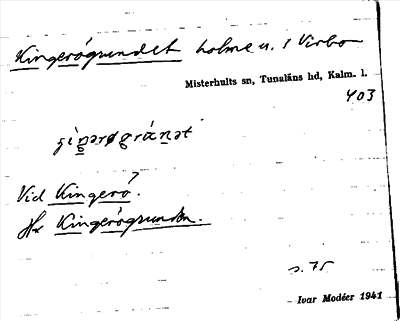 Kingerögrundet holme u. / Virbo
Misterhults sn, Tunaläns hd, Kalm. l.
403
Vid Kingerö?
Hx Kingerögrunden.
s. 75
Ivar Modéer 1941